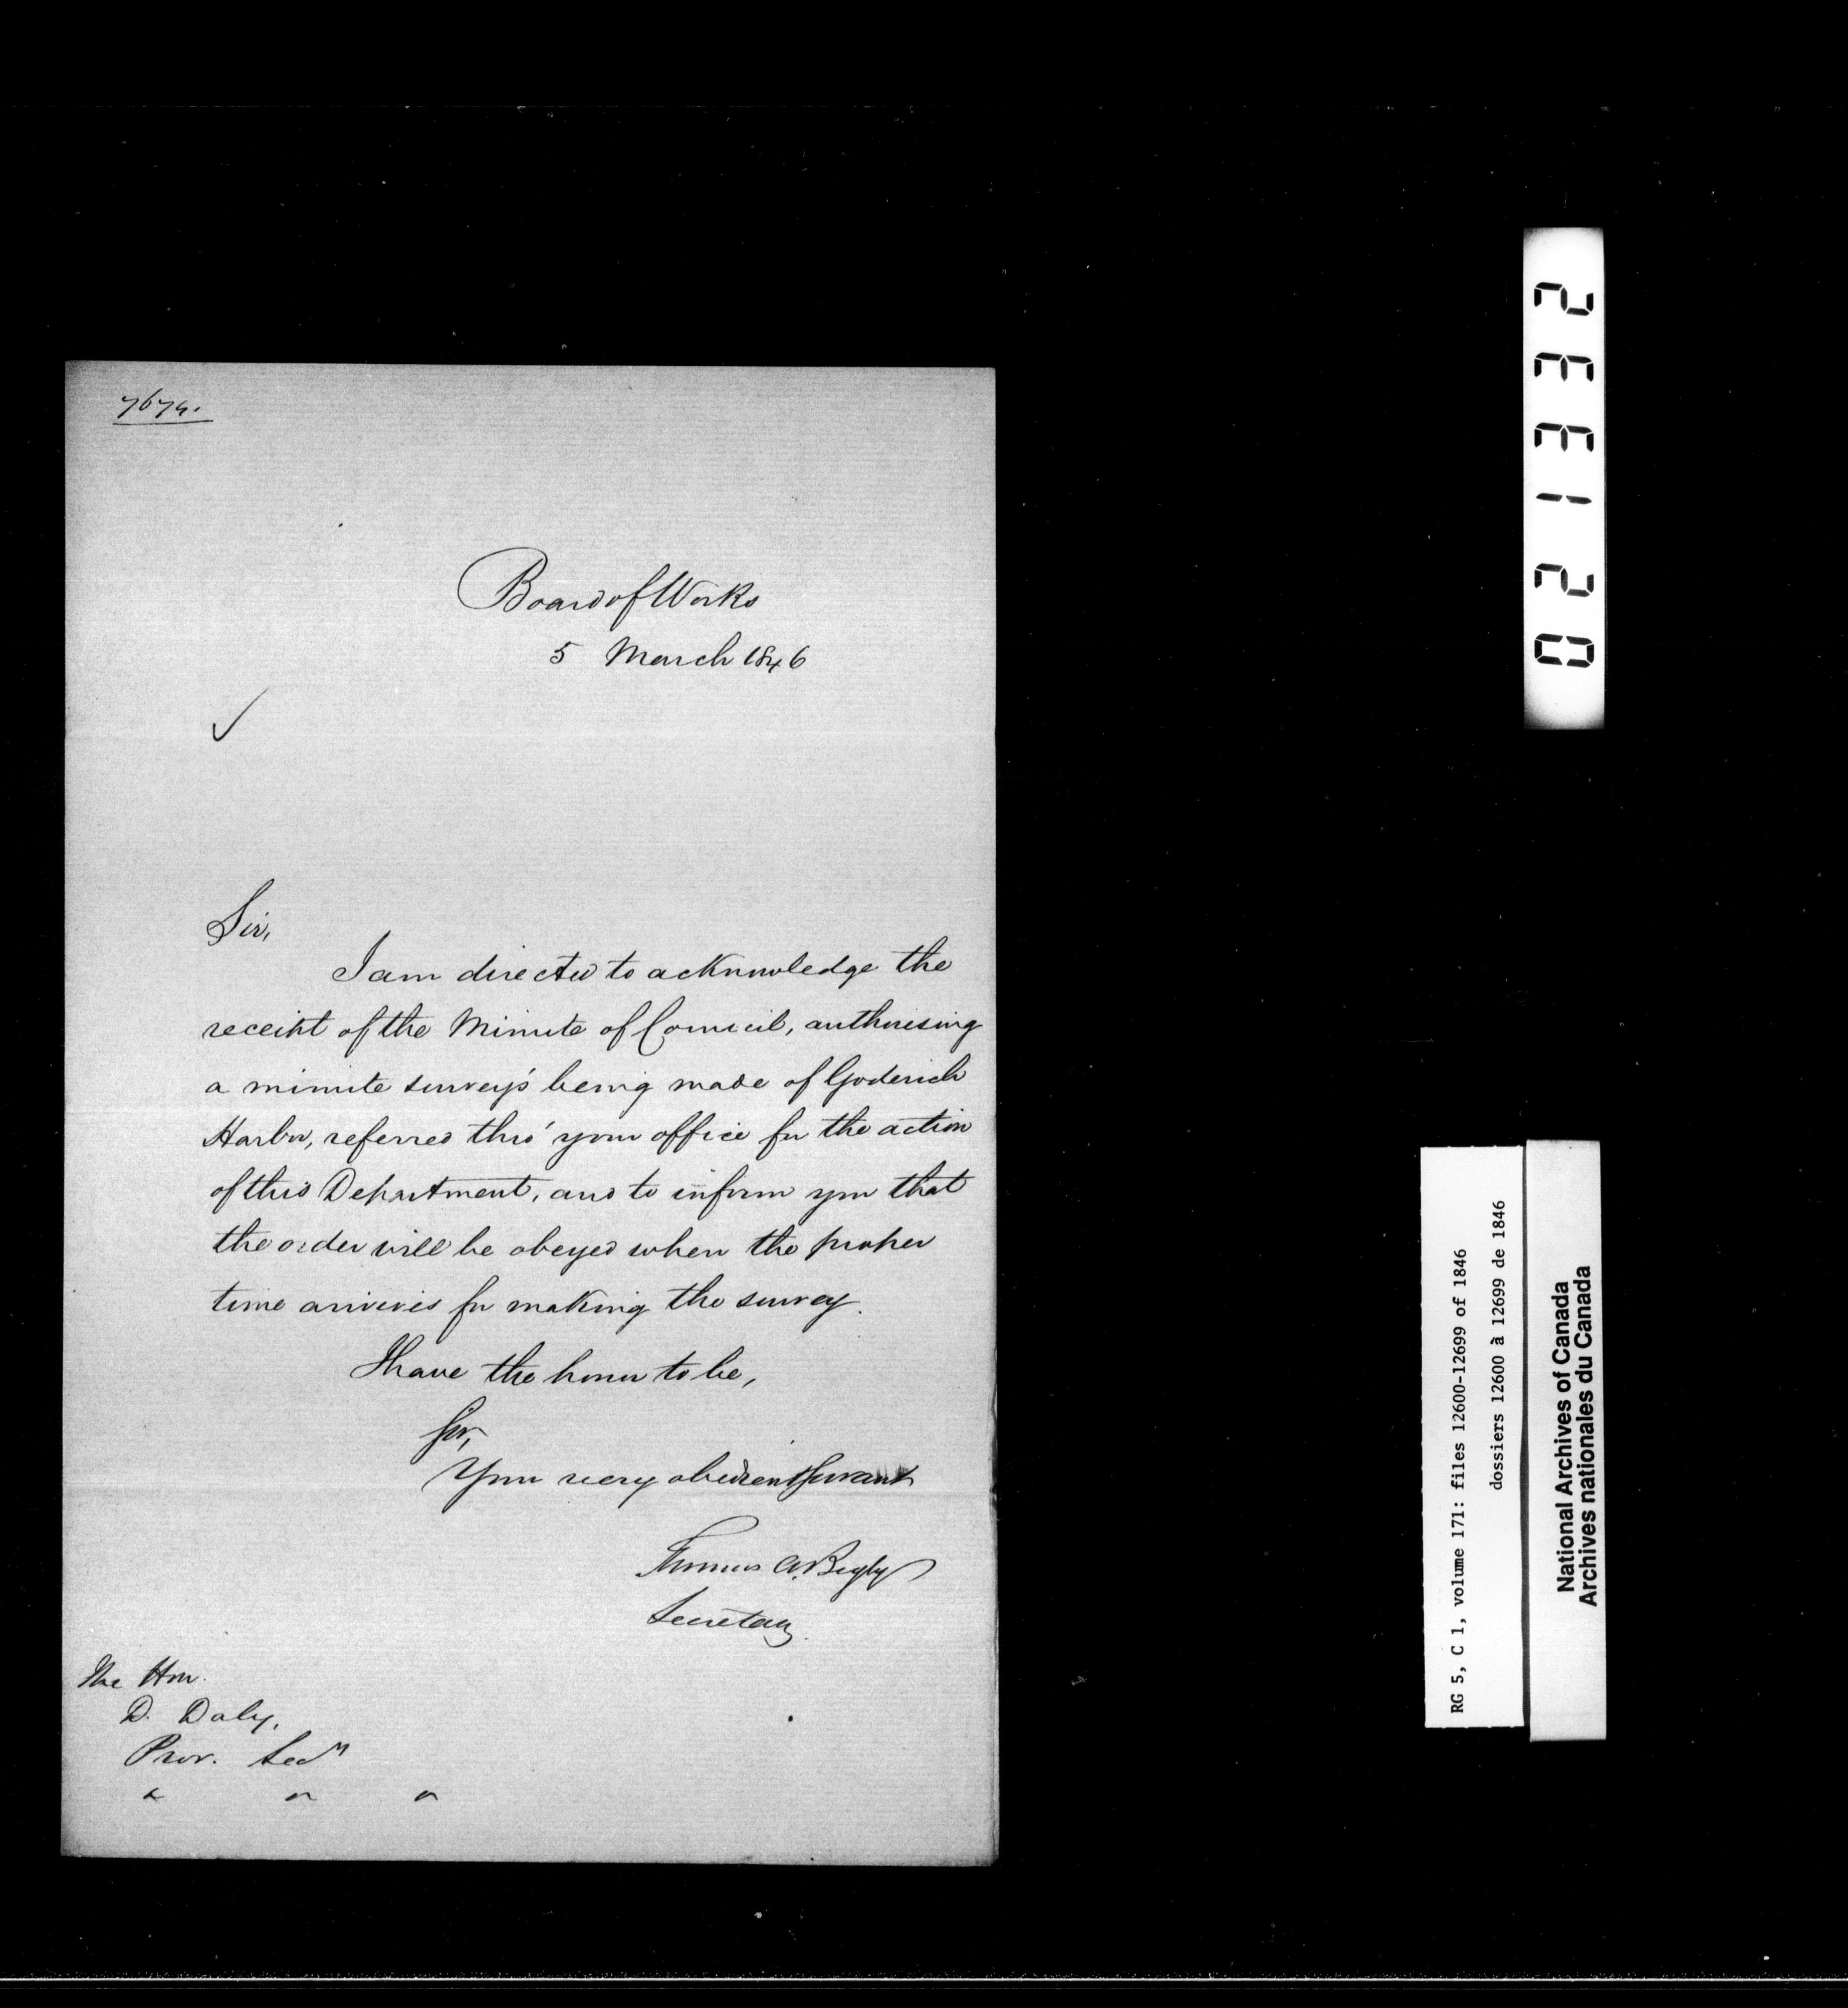 7674.
Board of Works
5 March 1846
Sir,
I am directed to acknowledge the
receipt of the Minute of Council, authorising
a minute survey's being made of Goderich
Harbor, referred thro' your office for the action
of this Department, and to inform you that
the order will be obeyed when the proper
time arrives for making the survey.
I have the honor to be,
Sir,
Your very obedient Servant
Thomas A. Begly
Secretary.
The Hon.
D. Daly,
Prov. Secy
" " "
021332
RG 5, C 1, volume 171: files 12600-12699 of 1846
dossiers 12600 à 12699 de 1846
National Archives of Canada
Archives nationales du Canada